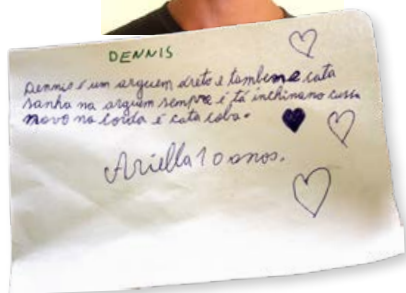 DENNIS
Dennis é um arguem dreto e tambene cata
ranha na arguem sempre é tá inchinano cusa
novo no corda é cata caba.
Ariella 10 anos.